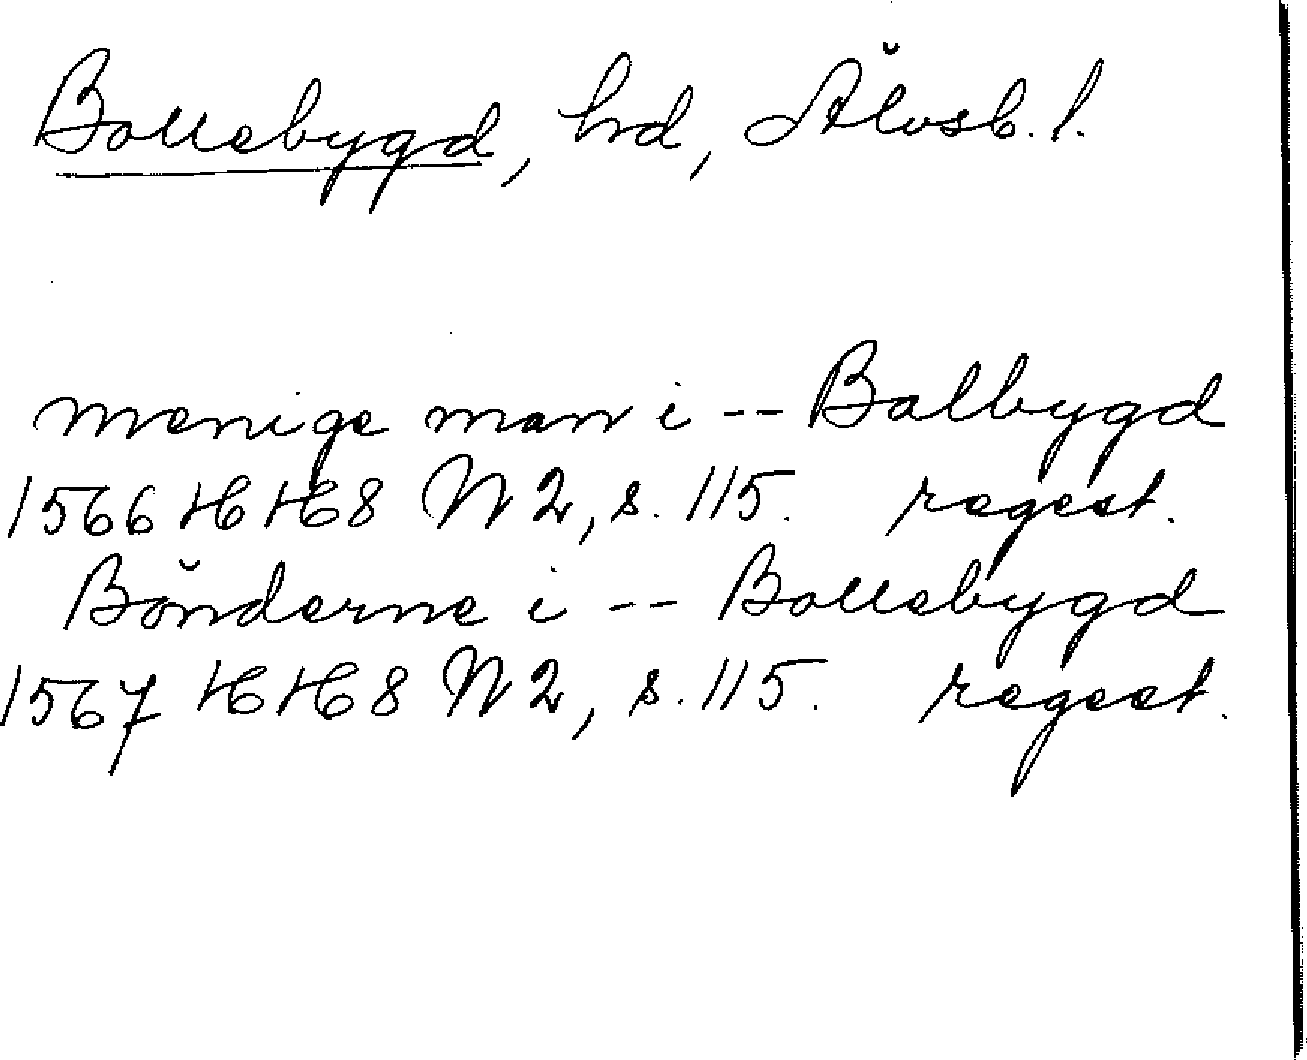 Bollebygd, hd, Älvsb. l.
menige man i -- Balbygd
1566 HH 8 N 2, s. 115. regest.
Bönderne i -- Bollebygd
1567 HH 8 N 2, s. 115. regest.